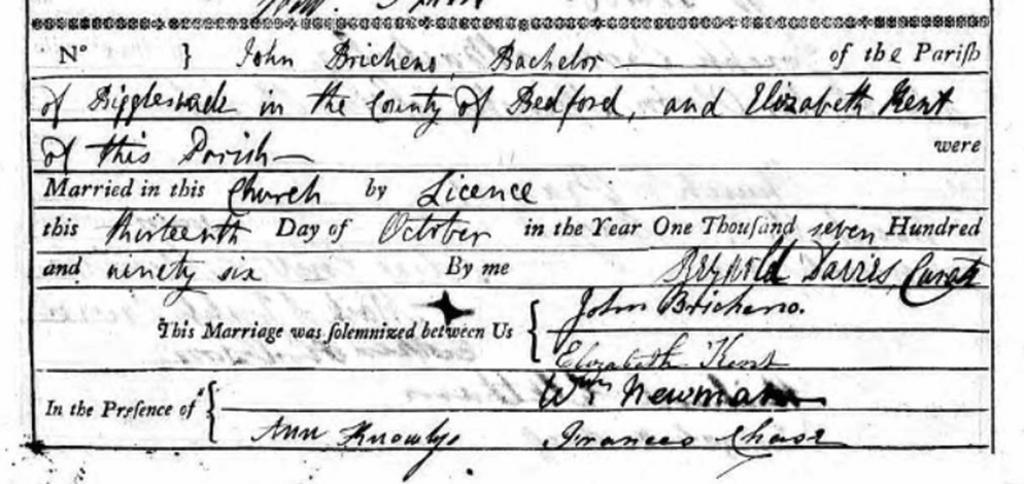 No } John Bricheno, Bachelor of the Pariſh
of Biggleswade in the County of Bedford, and Elizabeth Kent
of this Parish were
Married in this Church by Licence
this thirteenth Day of October in the Year One Thouſand seven Hundred
and ninety six By me Reynold Davies, Curate
This Marriage was ſolemnized between Us { John Bricheno.
Elizabeth Kent
In the Preſence of { Wm Newman
Ann Knowlys Frances Chase